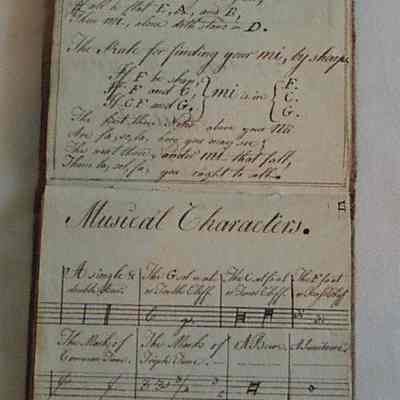 If all be flat E, A, and B,
Then mi, alone doth stand in D.
The Rule for finding your mi, by sharps.
If F be sharp, } mi is in { F.
If F and C, C.
If C F and G. G.
The first three Notes above your Mi
Are fa, so, la, here you may see;
The next three, under mi that fall,
Them la, sol, fa, you ought to call.
Musical Characters.
A single & The G The C The F
double Bar. or Tenor Cliff or Bass Cliff
The Mark of The Marks of A Brace.
Common Time. Triple Time.